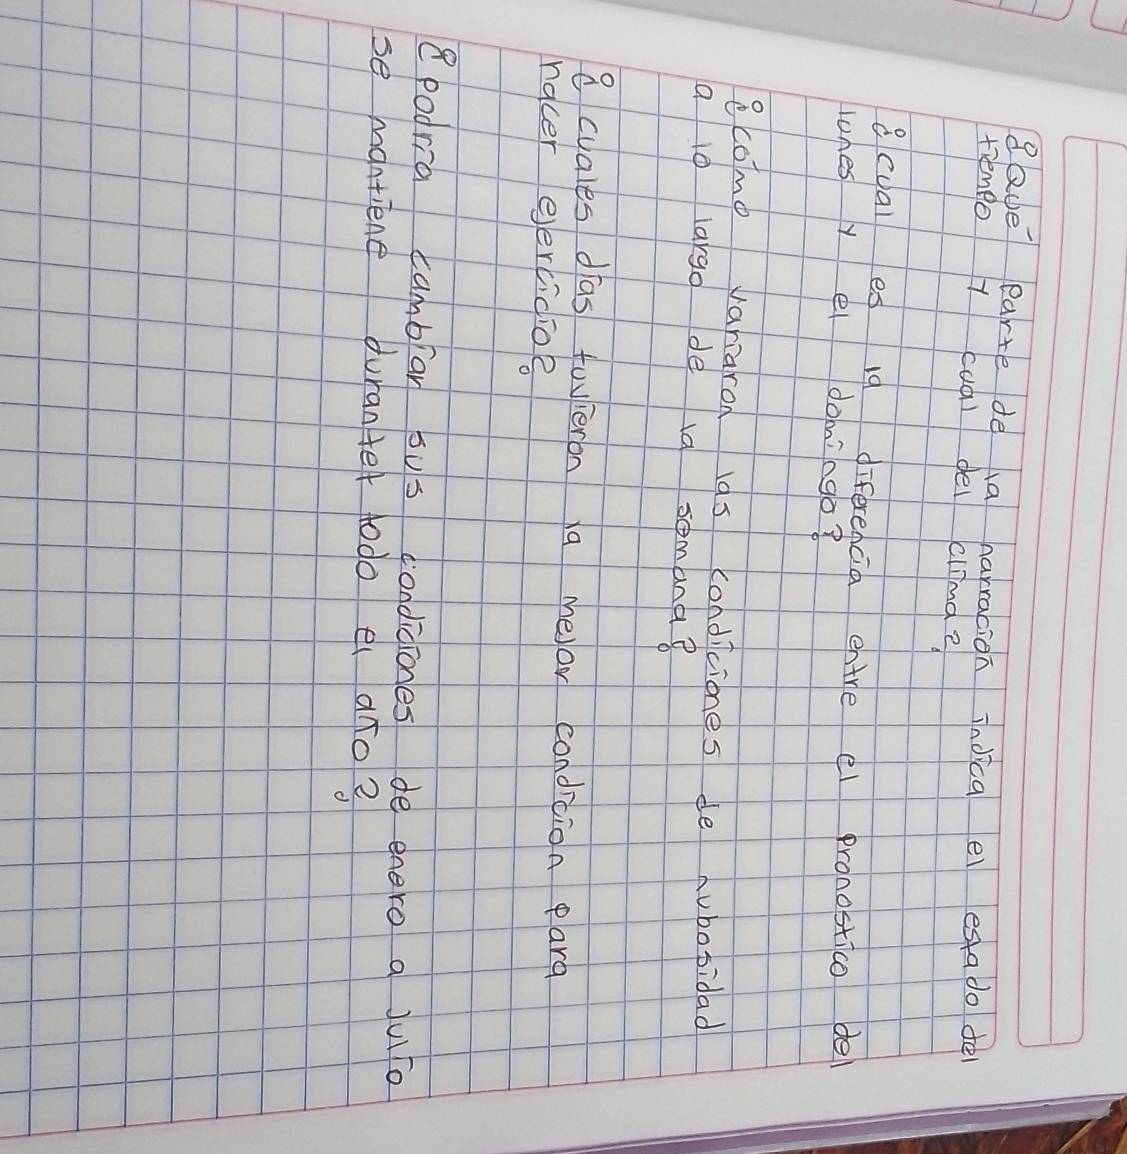 ¿Qué parte de la narración indica el estado del
tiempo y cual del clima?
¿cual es la diferencia entre el pronostico del
lunes y el domingo?
¿cómo variaron las condiciones de nubosidad
a lo largo de la semana?
¿cuales días tuvieron la mejor condición para
hacer ejercicio?
¿Podría cambiar sus condiciones de enero a Julio
se mantiene durantet todo el año?